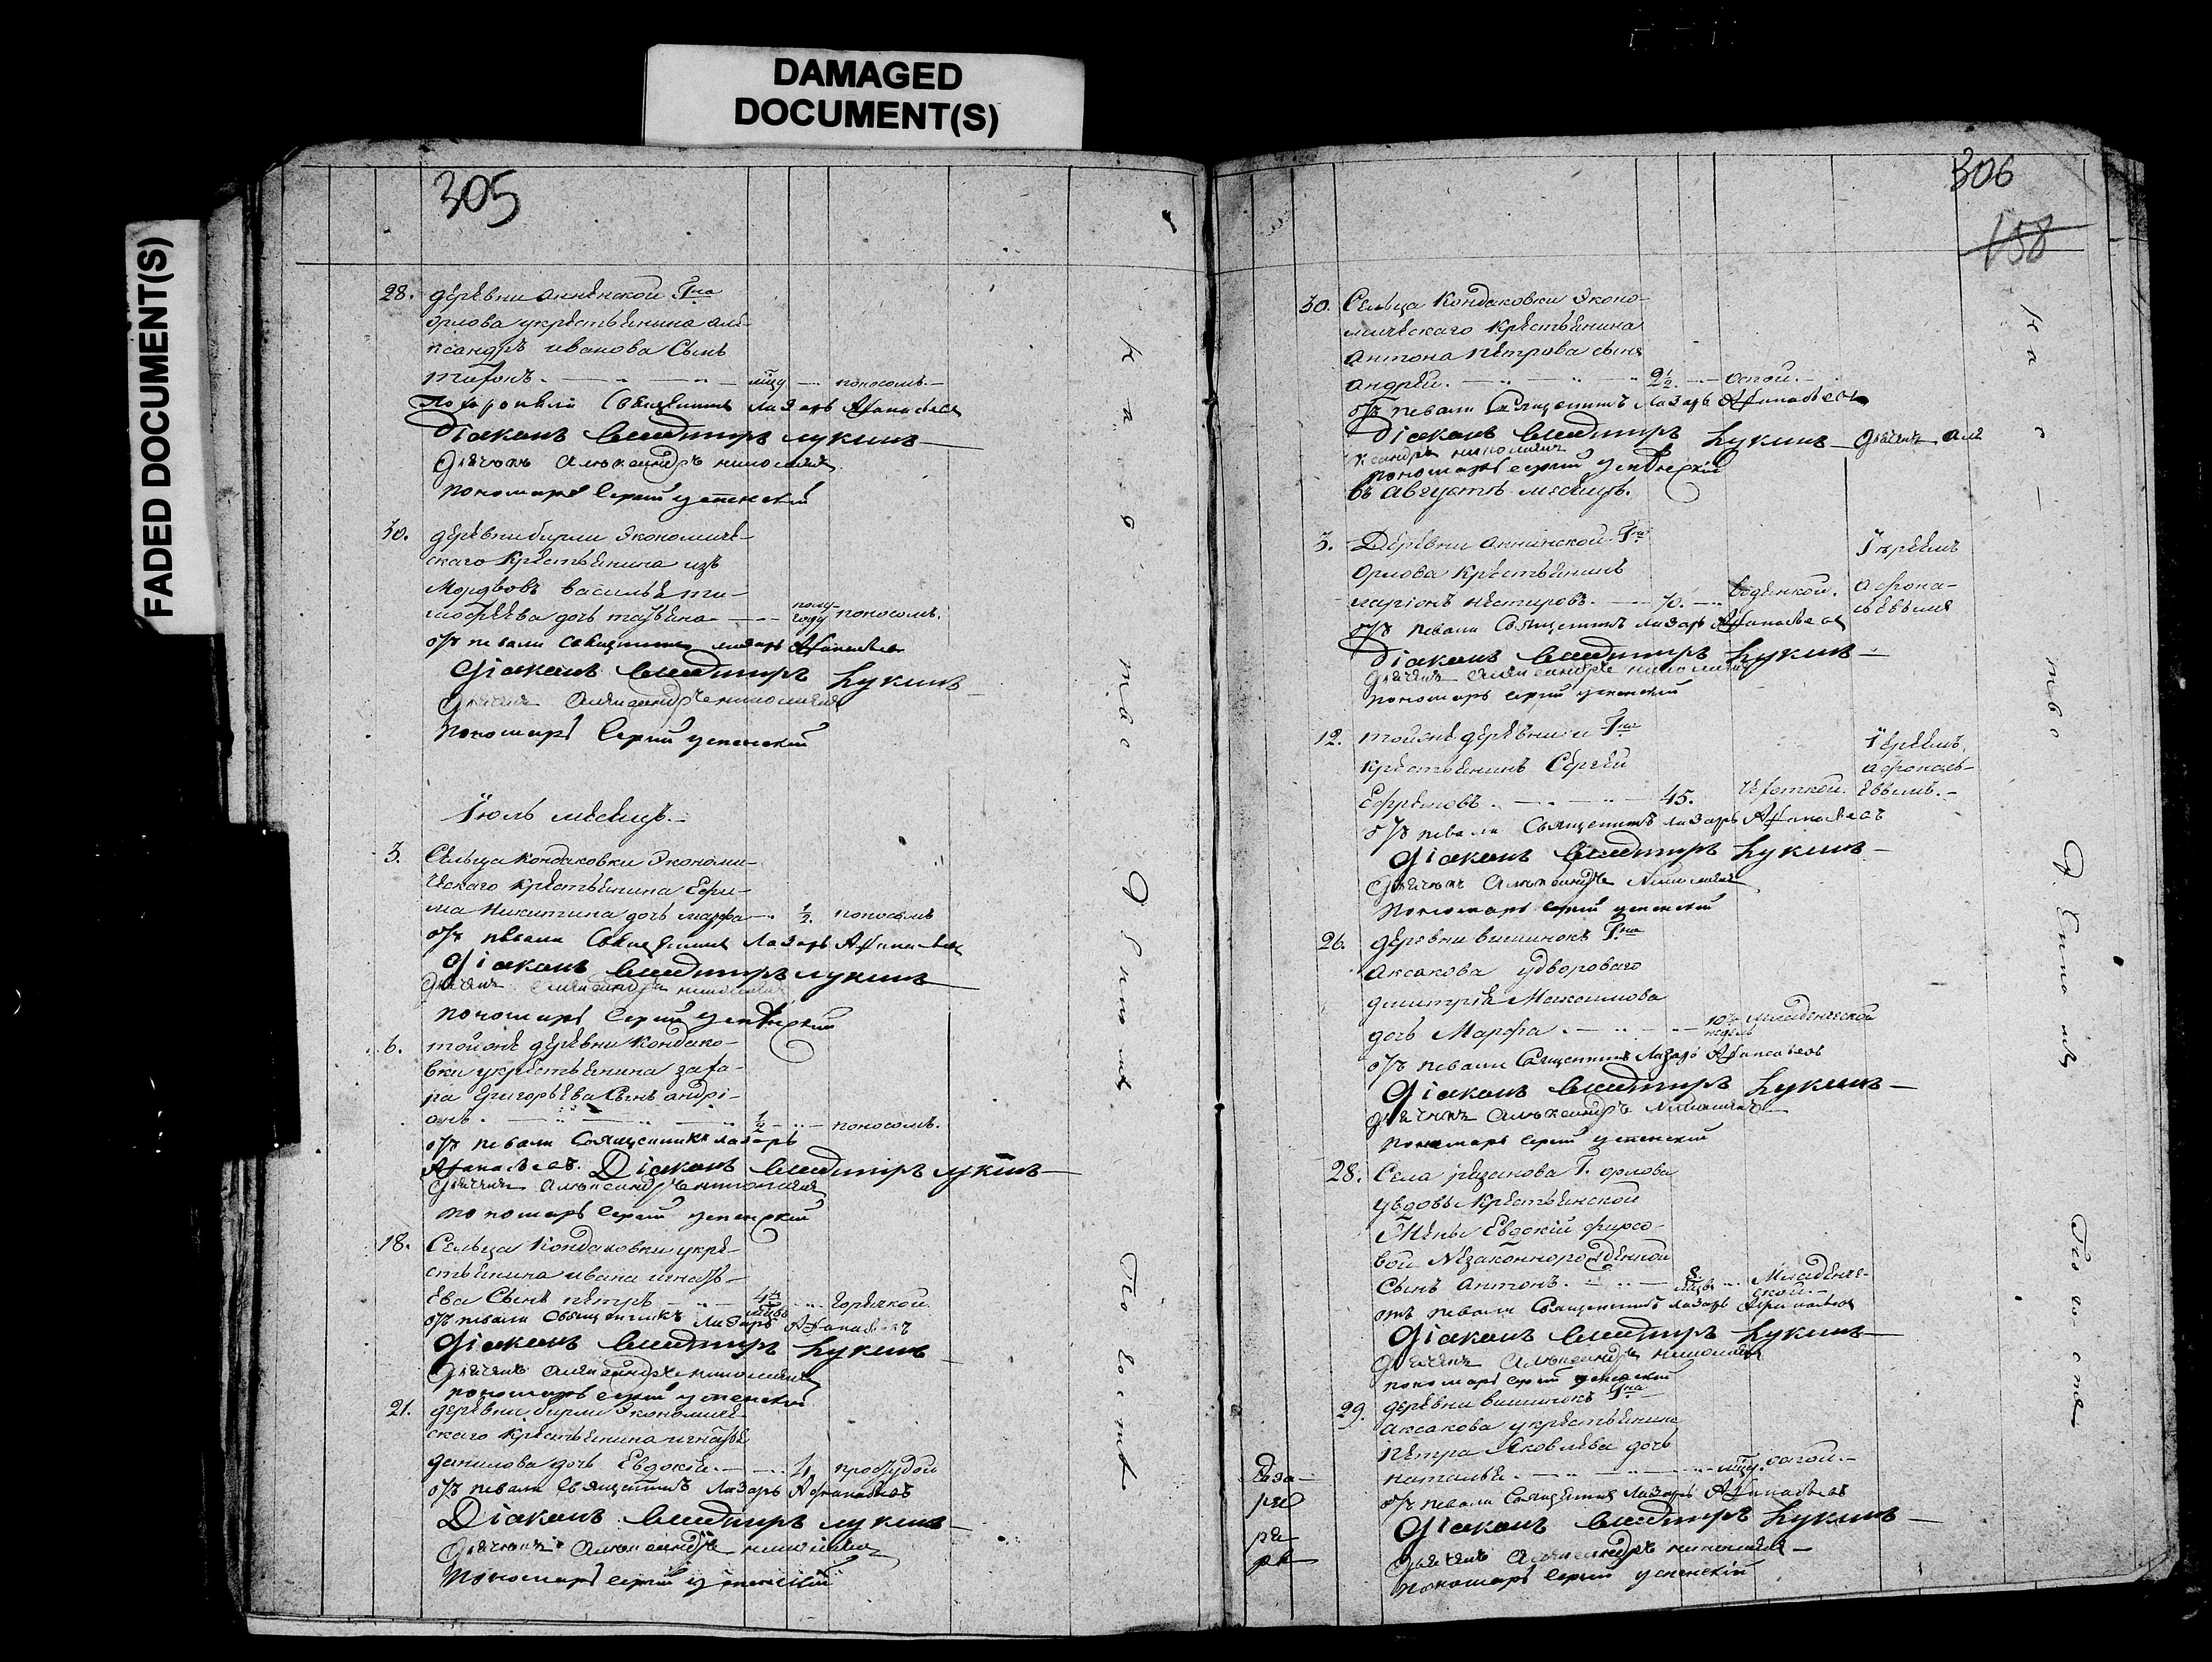 DAMAGED
DOCUMENT(S)
FADED DOCUMENT(S)
305
28. деревни аннѣнской Гна
Орлова укрестьянина але-
ксандръ иванова Сынъ
мсцу поносомъ.
Похоронили Священникъ Лазарь Афанасьевъ
Діаконъ Владимиръ лукинъ
Дьячокъ Александръ
пономарь Сергий успенский
30. деревни бирли Экономиче-
скаго Крестьянина изъ
Мордвовъ василья ти-
мофеева дочь
полу-
году поносомъ.
отпевали Священникъ лазарь Афанасьевъ
Діаконъ Владимиръ Лукинъ
Дьячекъ Александръ
пономарь Сергий успенский
Їюль месецъ.
3. Сельца кондаковки Экономи-
ческаго крестьянина Ефи-
ма Никитина дочь марфа 1/2. поносомъ
отпевали Священникъ Лазарь Афанасьевъ
Діаконъ Владимиръ лукинъ
Дьячекъ Александръ
пономарь Сергий успенский
6. тойже деревни Кондако-
вки укрестьянина заха-
ра Григорьева Сынъ андрі-
анъ. 1/2 поносомъ.
отпевали Священникъ лазарь
Афанасьевъ. Діаконъ Владимиръ лукинъ
Дьячекъ Александръ
пономарь Сергий успенский
18. Сельца Кондаковки укре-
стьянина ивана игнать-
ева Сынъ петръ 4х
мсцвъ горячкой.
отпевали Священникъ Лазарь Афанасьевъ
Діаконъ Владимиръ Лукинъ
Дьячекъ Александръ
пономарь Сергий успенский
21. деревни бирли Экономиче-
скаго крестьянина игнатья
данилова дочь Евдокія. 4 простудой
отпевали Священникъ Лазарь Афанасьевъ
Діаконъ Владимиръ лукинъ
Дьячокъ Александръ
Пономарь Сергий успенский
306
158
30. Сельца Кондаковки Эконо-
мическаго Крестьянина
антона петрова сынъ
андрей. 2 1/2. оспой.
отпевали Священникъ Лазарь Афанасьевъ
Діаконъ Владимиръ Лукинъ Дьячекъ Але
ксандръ
пономарь Сергий успенский
въ августѣ месецѣ.
3. Деревни аннинской Гна
Орлова Крестьянинъ
ларіонъ нестеровъ. 70. водянкой. Їереемъ
афона-
сьевымъ
отпевали Священникъ лазарь Афанасьевъ
Діаконъ Владимиръ Лукинъ
Дьячекъ Александръ
пономарь Сергий успенский
12. тойже деревни и Гна
крестьянинъ Сергей
Ефремовъ. 45. Чехоткой. Їереемъ
афонась-
евымъ.
отпевали Священникъ лазарь Афанасьевъ
Діаконъ Владимиръ Лукинъ
Дьячокъ Александръ
Пономарь Сергий успенский
26. деревни вишинокъ Гна
аксакова удвороваго
дмитрія Максимова
дочь Марфа. 10ть
недель младенческой
отпевали Священникъ Лазарь Афанасьевъ
Діаконъ Владимиръ Лукинъ
Дьячокъ Александръ
Пономарь Сергий успенский
28. Села рязанова Г. орлова
увдовы Крестьянской
Жены Евдокіи фирсо-
вой Незаконнорожденной
Сынъ антонъ. 8.
мсцвъ Младенче-
ской.
отпевали Священникъ лазарь Афанасьевъ
Діаконъ Владимиръ Лукинъ
Дьячекъ Александръ
пономарь Сергий успенский
29. деревни вишинокъ Гна
аксакова укрестьянина
петра Яковлева дочь
наталья. мсцу. оспой.
отпевали Священникъ Лазарь Афанасьевъ
Діаконъ Владимиръ Лукинъ
Дьячекъ Александръ
пономарь Сергий успенский